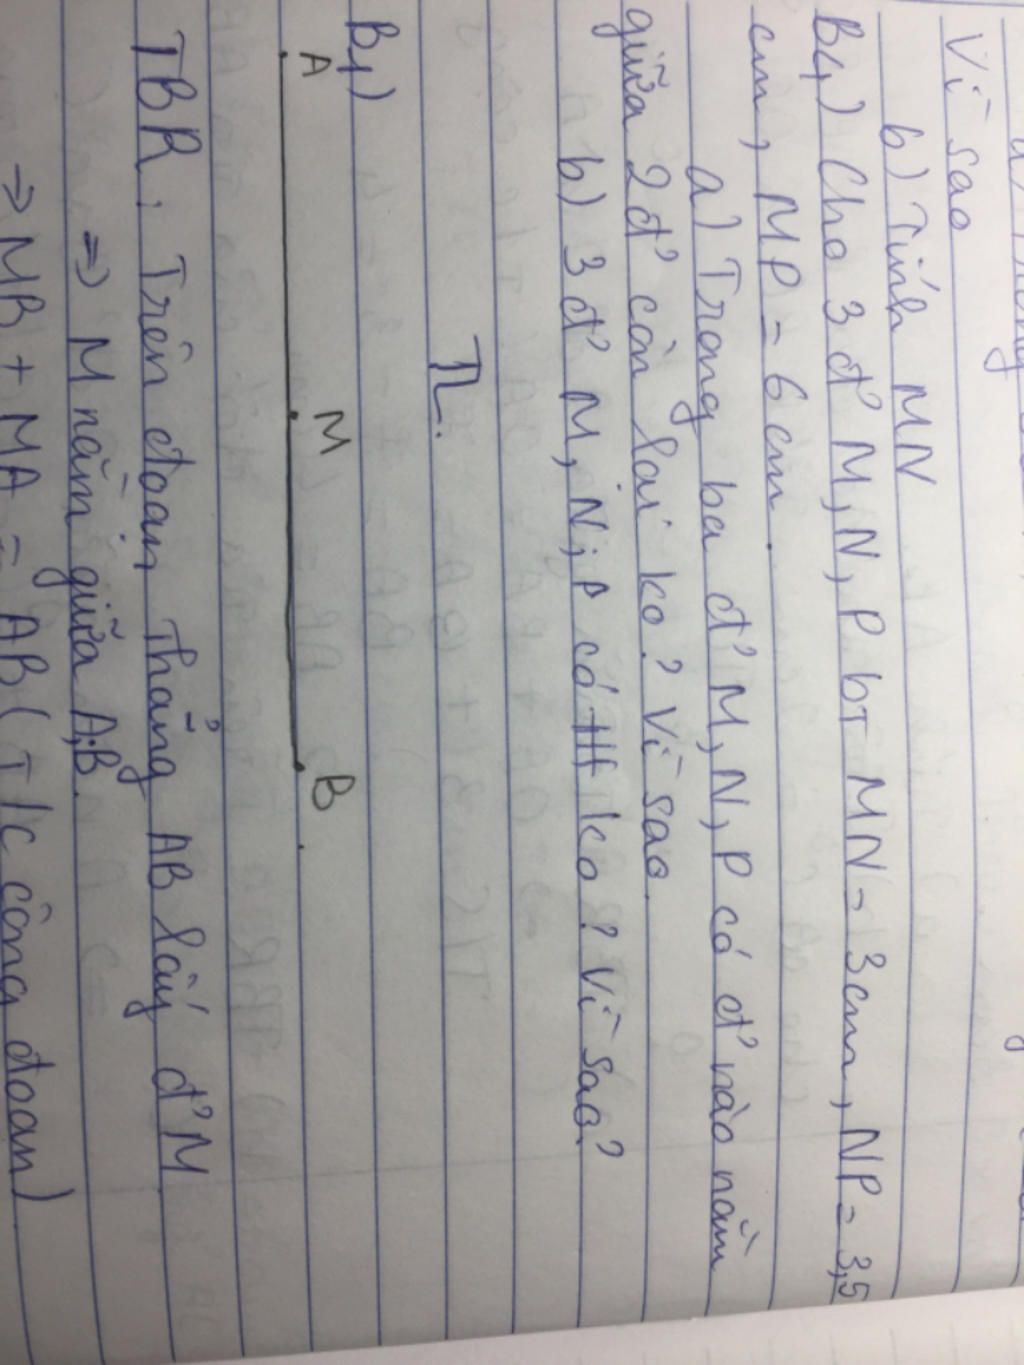 Vì sao
b) Tính MN
B4) Cho 3 đ' M, N, P bT MN = 3cm, NP = 3,5
cm, MP = 6 cm.
a) Trong ba đ' M, N, P có đ' nào nằm
giữa 2 đ' còn lại ko? Vì sao.
b) 3 đ' M, N, P có HH ko? Vì sao?
B1)
A M B
TBR: Trên đoạn thẳng AB lấy đ' M
=> M nằm giữa A; B
=> MB + MA = AB (T/c cộng đoạn)